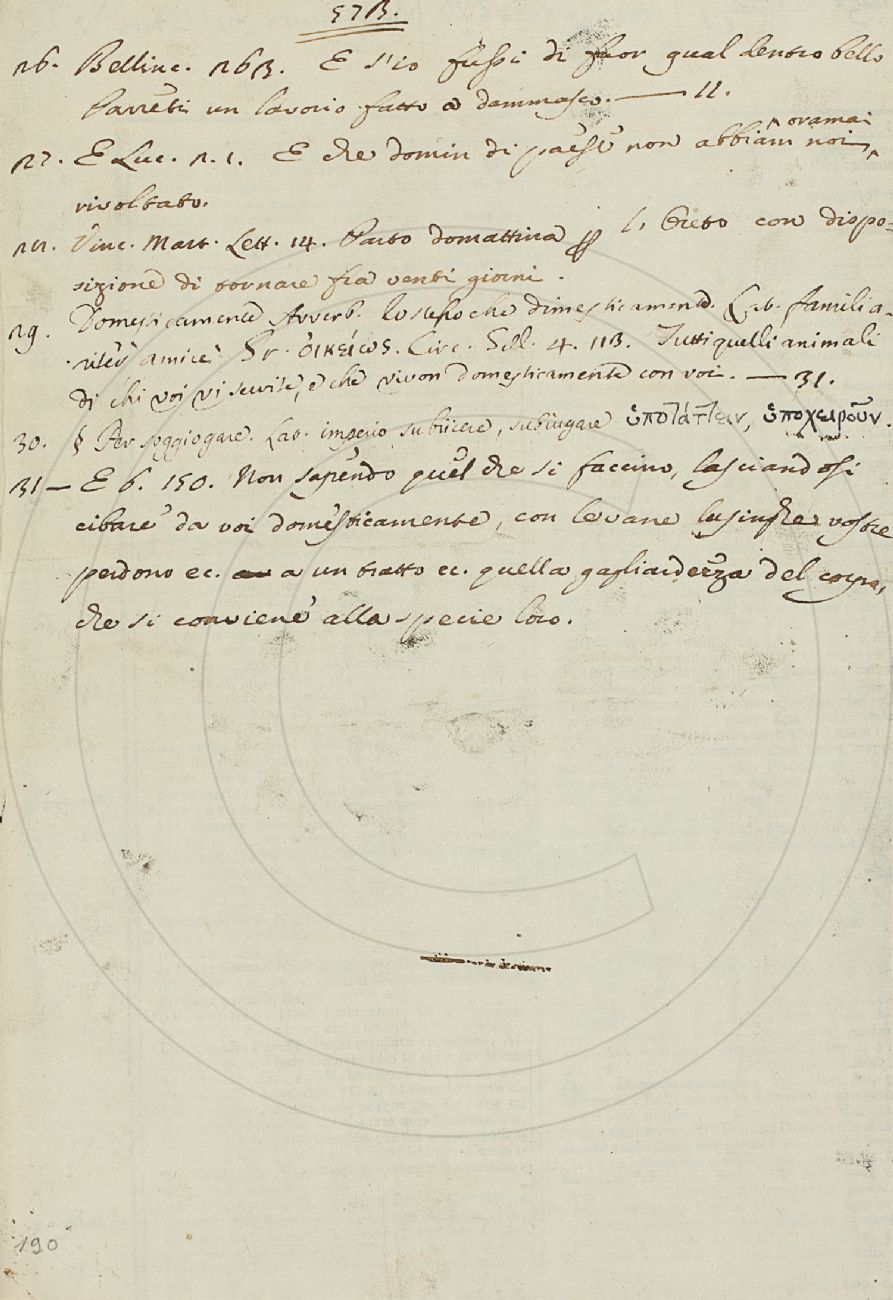 573.
26. Bellinc. 263. E s'io fussi di fuor qual dentro bello
Parresti un lavorio fatto a dammasco. — 11.
27. E Luc. 2. 1. E che domin di paese non abbiam noi oramai
rivoltato.
28. Vinc. Mart. Lett. 14. Parto domattina p lo Cieto con dispo=
sizione di tornare fra venti giorni.
29. Domesticamente Avverb. lo stesso che dimesticamente. Lat. familia-
riter amice. Gr. ὀικείως. Circ. Gell. 4. 113. Tutti quelli animali
di chi voi vi servite, e che vivon domesticamente con voi. — 31.
30. § Per soggiogare. Lat. imperio subiicere, subiugare ὑποτάττειν, ὑποχειροῦν.
31 — E 6. 150. Non sapendo quel che si faccino, lasciandosi
cibare da voi domesticamente, con le vane lusinghe vostre
perdono ec. a un tratto ec. quella gagliardezza del corpo,
che si conviene alla specie loro.
190